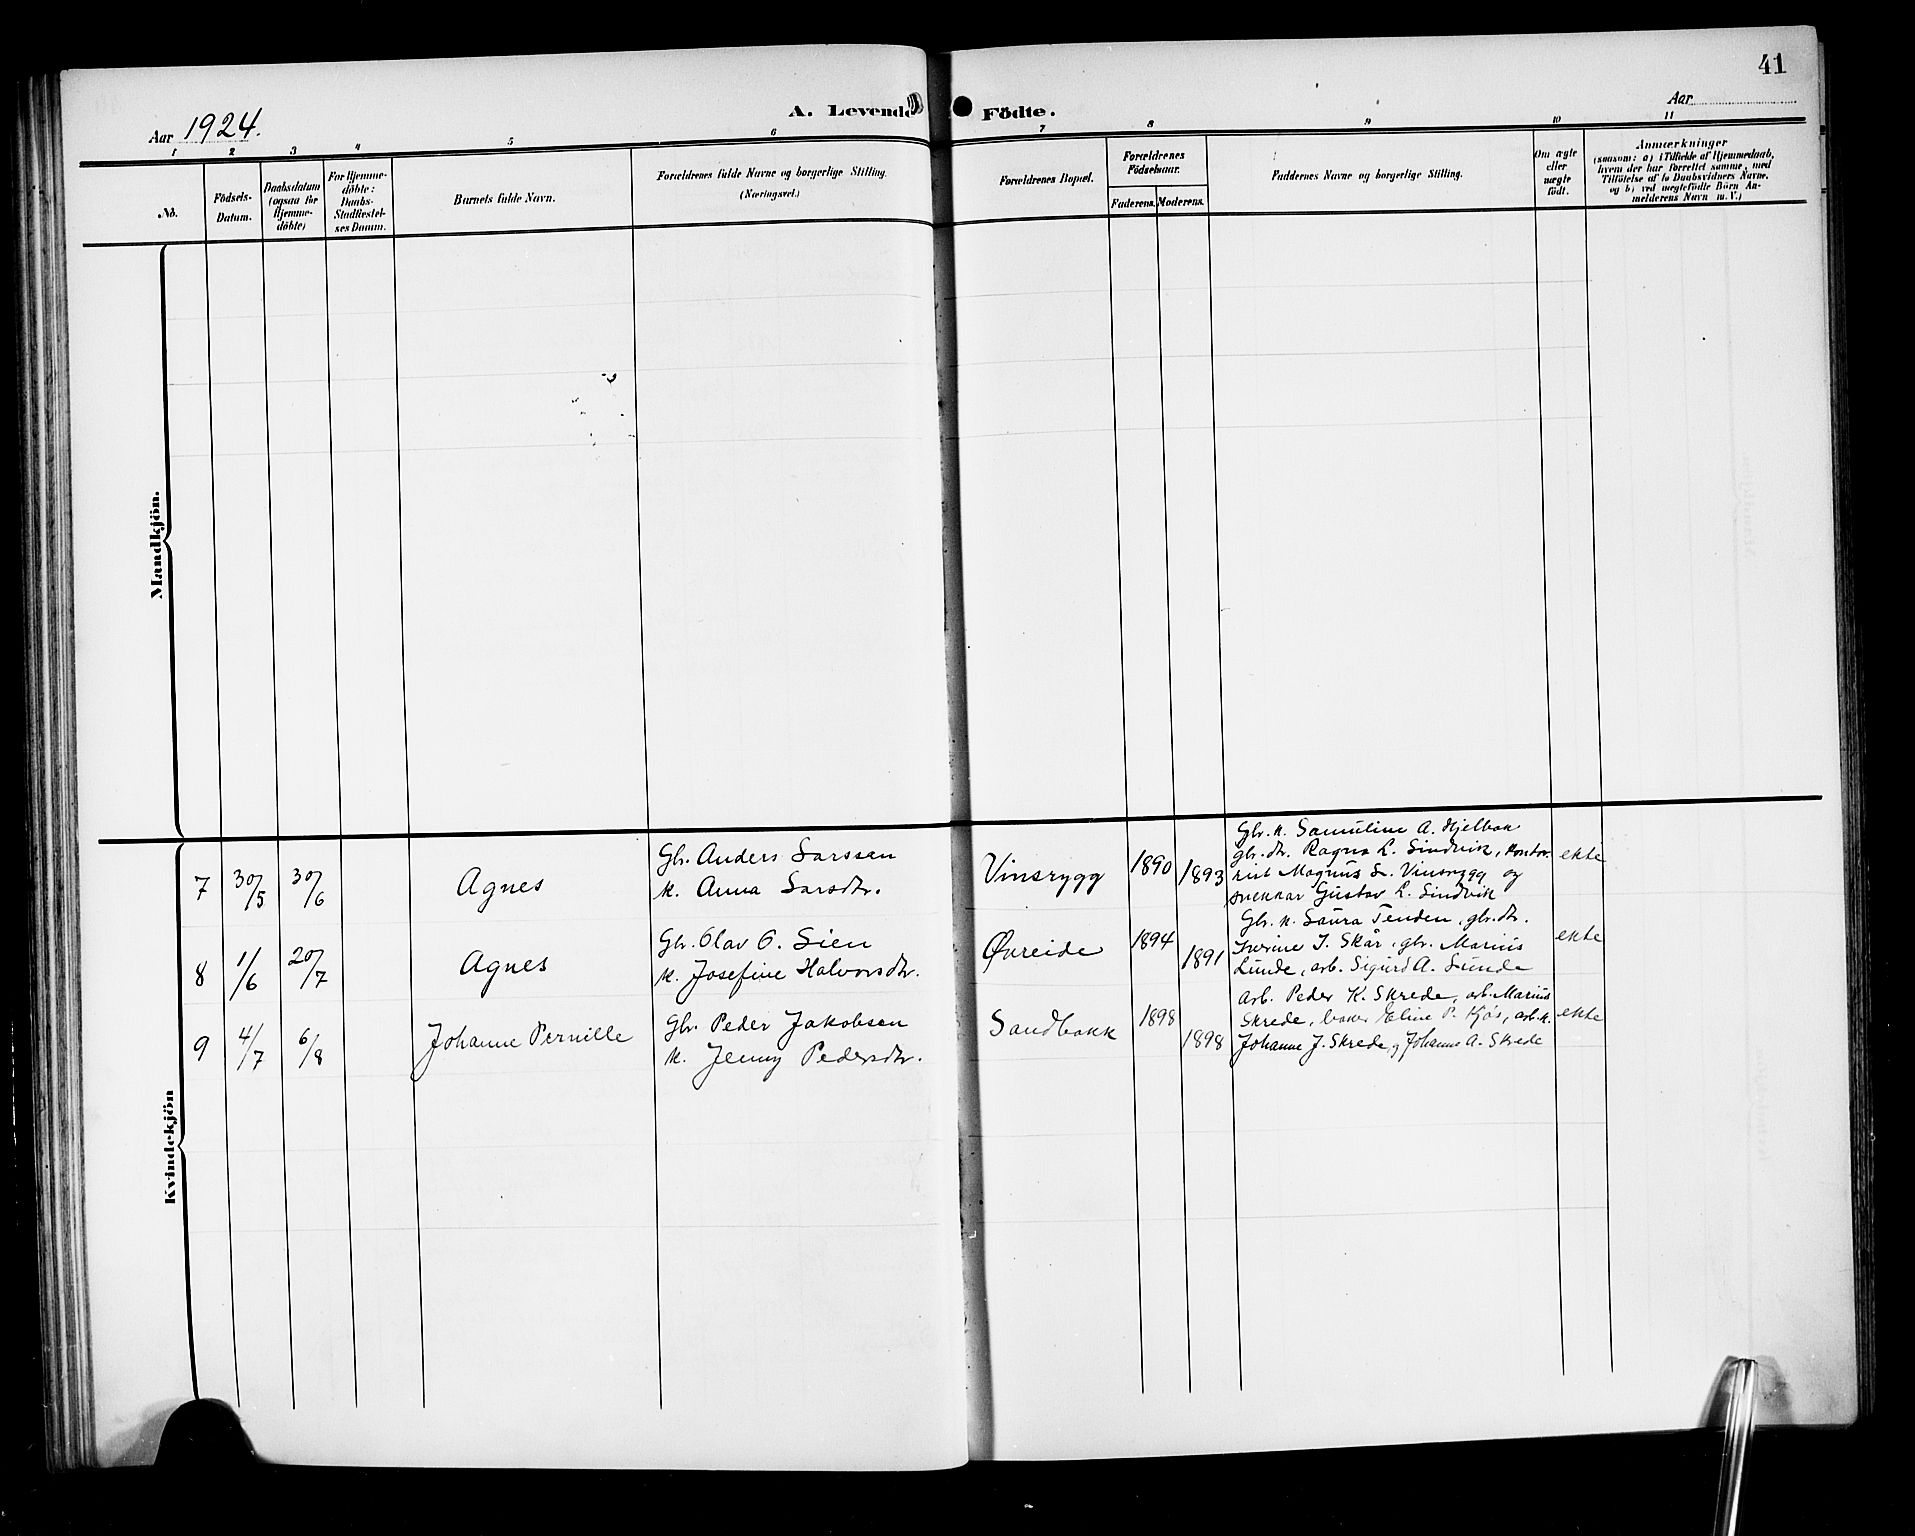 41
Aar 1924.
A. Levende Födte.
Aar
1 2 3 4 5 6 7 8 9 10 11
No.
Födsels-
Datum.
Daabsdatum
(ogsaa for
Hjemme-
döbte)
For Hjemme-
döbte:
Daabs-
Stadfæstel-
ses Datum.
Barnets fulde Navn.
Forældrenes fulde Navne og borgerlige Stilling.
(Næringsvei.)
Forældrenes Bopæl.
Forældrenes
Födselsaar.
Faderens. Moderens.
Faddernes Navne og borgerlige Stilling.
Om ægte
eller
uægte
födt.
Anmærkninger
(saasom: a) i Tilfælde af Hjemmedaab,
hvem der har forrettet samme, med
Tilföielse af to Daabsvidners Navne,
og b) ved uægtefödte Börn An-
melderens Navn m. V.)
Mandkjön.
Kvindekjön
7 30/5 30/6 Agnes
Gbr. Anders Larssen
k. Anna Larsdtr.
Vinsrygg 1890 1893
Gbr. k. Samuline A. Hjelbak
gbr. dtr. Ragna L. Sindvik, kontor-
rist Magnus L. Vinsrygg og
snekkar Gustav L. Sindvik
ekte
8 1/6 20/7 Agnes
Gbr. Olav O. Lien
k. Josefine Halvorsdtr.
Øvreide 1894 1891
Gbr. k. Laura Tenden, gbr. dtr.
J. Skår, gbr. Marius
Lunde, arb. Sigurd A. Lunde
ekte
9 4/7 6/8 Johanne Pernille
Gbr. Peder Jakobsen
k. Jenny Pedersdtr.
Sandbakk 1898 1898
arb. Peder K. Skrede, arb. Marius
Skrede, Eline P. Kjøs, arb. k.
Johanne J. Skrede, Johanns A. Skrede
ekte